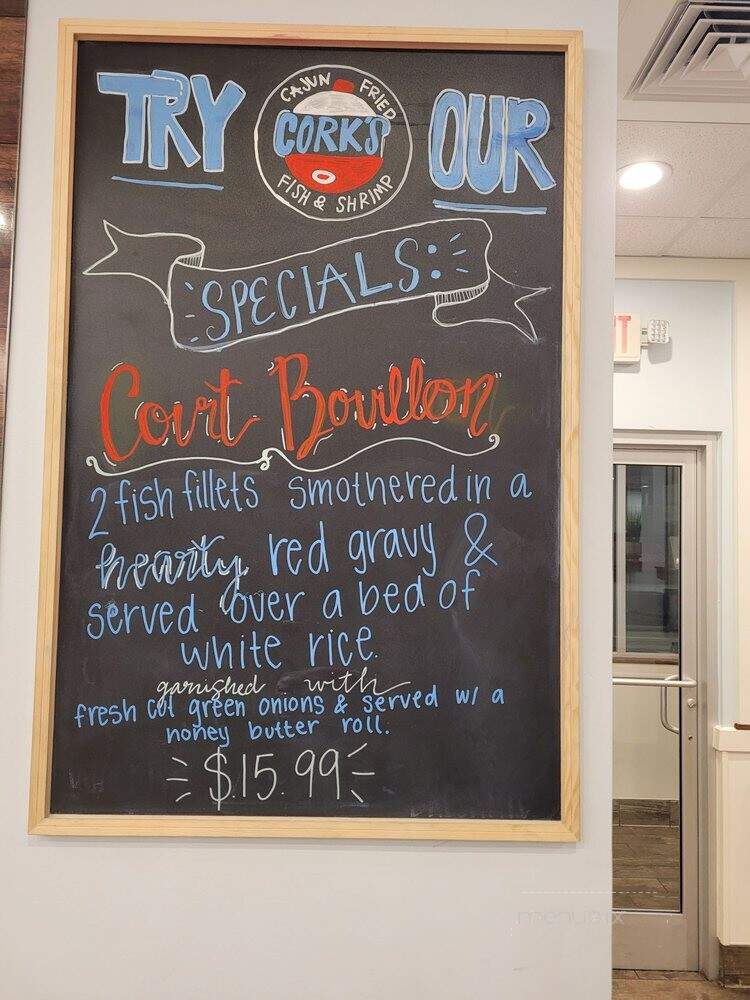 TRY
CAJUN FRIED
CORK'S
FISH & SHRIMP
OUR
SPECIALS:
Court Bouillon
2 fish fillets smothered in a
hearty red gravy &
served over a bed of
white rice.
garnished with
fresh cut green onions & served w/ a
honey butter roll.
$15.99
IT
menupix